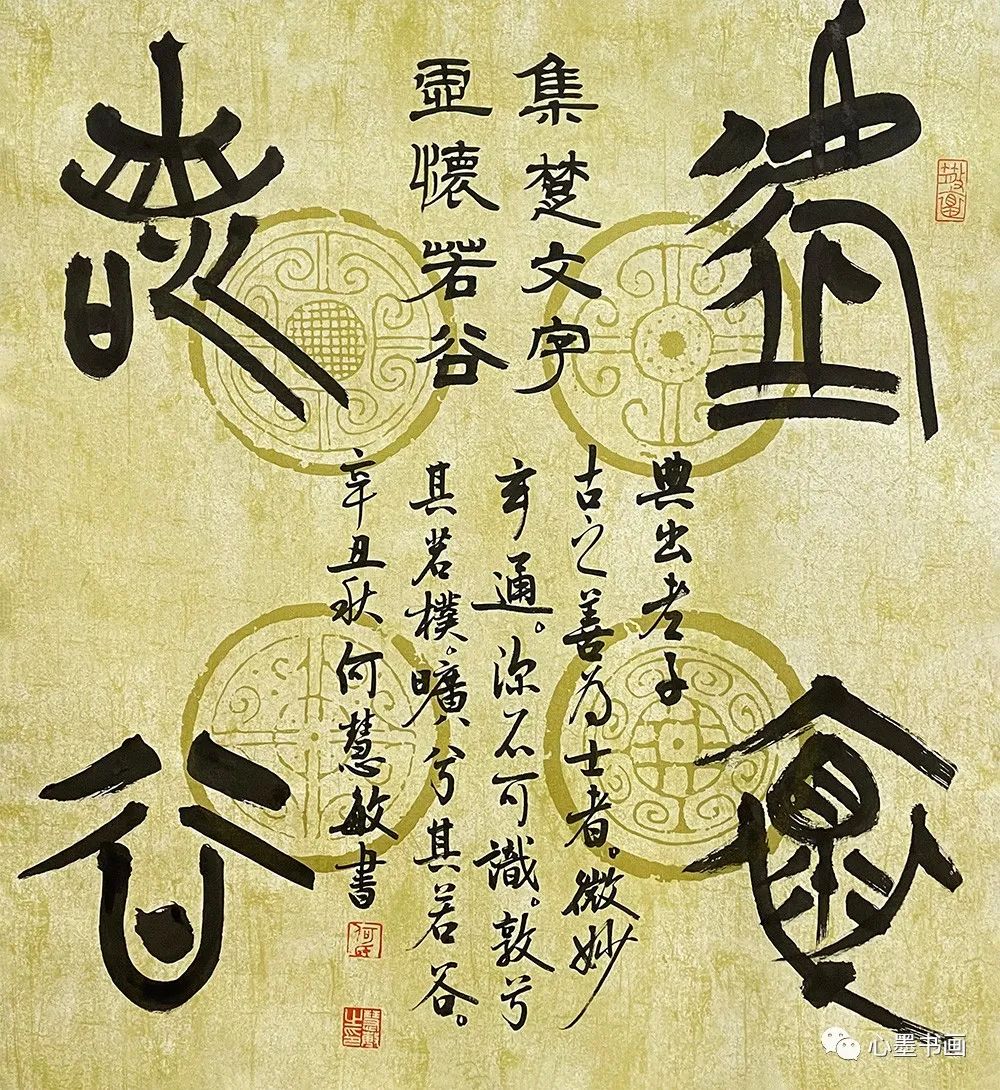 虛懷
若谷
集楚文字
虛懷若谷
典出老子
古之善為士者。微妙
玄通。深不可識。敦兮
其若樸。曠兮其若谷。
辛丑秋何慧敏書
何氏
慧敏之印
心墨书画